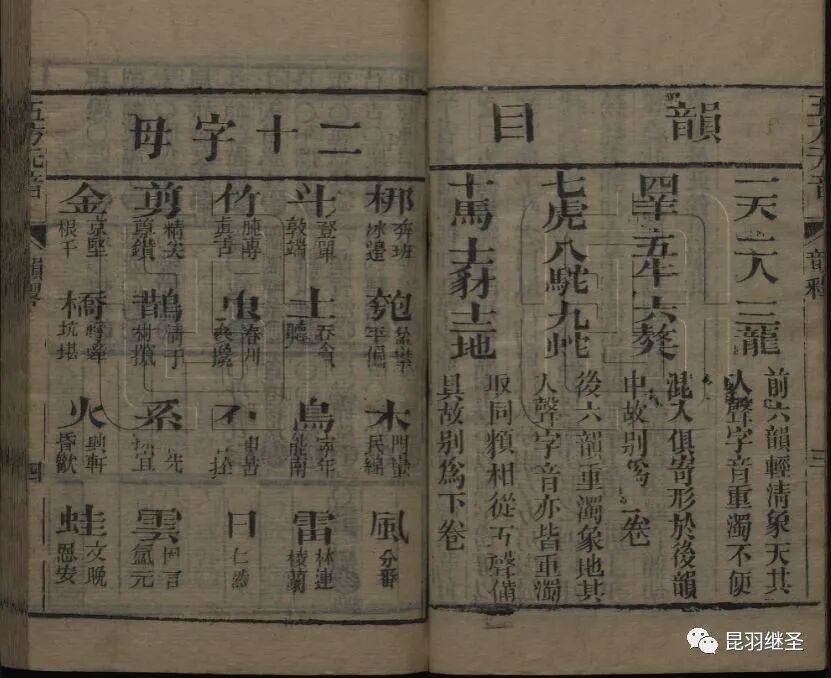 五方元音
韻釋
三
韻目
一天二人三龍
前六韻輕清象天其
入聲字音重濁不便
四羊五牛六獒
混入俱寄形於後韻
中故別爲卷
七虎八駝九蛇
後六韻重濁象地其
入聲字音亦皆重濁
十馬十一豺十二地
取同類相從五聲備
具故別爲下卷
二十字母
梆 奔班 冰邊
匏 盆攀 平偏
木 門蠻 民綿
風 分番
斗 登單 敦端
土 吞貪 聽
鳥 寧年 能南
雷 林連 稜蘭
竹 肫專 真占
虫 春川
石 申苫
日 仁然
剪 精尖 尊鑽
鵲 清千
系 先 宣
雲 因言 氳元
金 京堅 根干
橋 輕牽 坑堪
火 興軒 昏歡
蛙 文晚 恩安
五方元音
韻釋
四
昆羽继圣